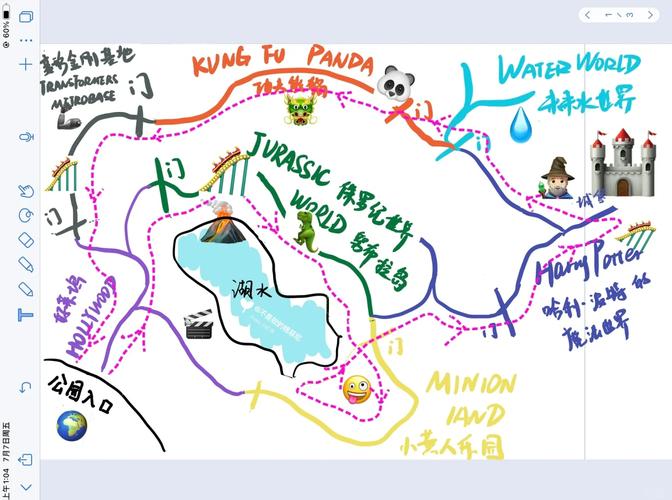 60%
1 / 3
变形金刚基地
TRANSFORMERS
METROBASE
门
KUNG FU PANDA
功夫熊猫
门
WATER WORLD
未来水世界
门
门
JURASSIC 侏罗纪世界
WORLD 努布拉岛
城堡
门
湖水
Harry Potter
哈利·波特的
魔法世界
门
好莱坞
HOLLYWOOD
门
MINION
LAND
小黄人乐园
公园入口
上午1:04 7月7日周五